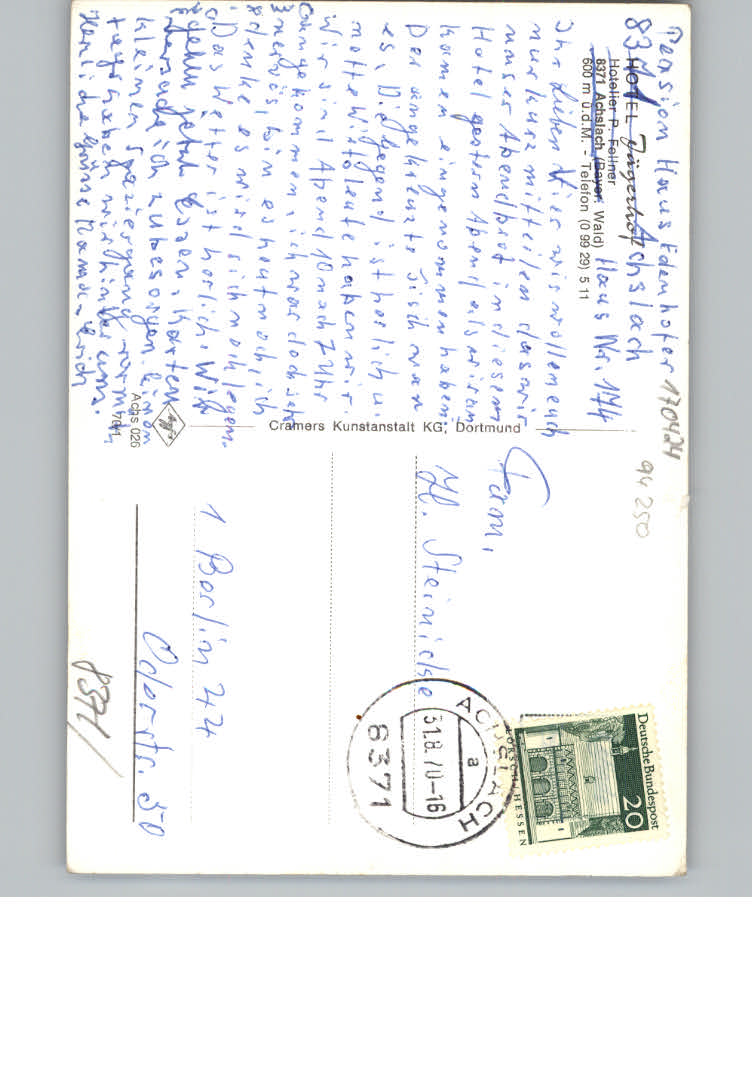 Pension Haus Edenhofer
8371 Achslach
Haus Nr. 174
HOTEL Jägerhof
Hotelier P. Fellner
8371 Achslach (Bayer. Wald)
600 m ü.d.M. - Telefon (0 99 29) 5 11
Ihr Lieben Vier wir wollen euch
nur kurz mitteilen das wir
unser Abendbrot in diesem
Hotel gestern Abend als wir an
kamen eingenommen haben.
Der angekreuzte Tisch war
es. Die Gegend ist herlich u.
nette Wirtsleute haben wir.
Wir sind Abend 10 nach 7 Uhr
angekommen, ich war doch sehr
nervös, bin es heut noch ich
denke es wird sich noch legen.
Das Wetter ist herlich. Wir
gehen jetzt Essen. Karten
versuche ich zu besorgen. Einen
kleinen Spaziergang
haben wir hinter uns.
Herzliche Grüsse Mama - Erich
170424
94 250
Cramers Kunstanstalt KG, Dortmund
Agfa
Achs 026
76/1
Fam.
H. Steinicke
1 Berlin 44
Oderstr. 50
8371
ACHSLACH
a
31.8.70-16
8371
Deutsche Bundespost
20
LORSCH/HESSEN